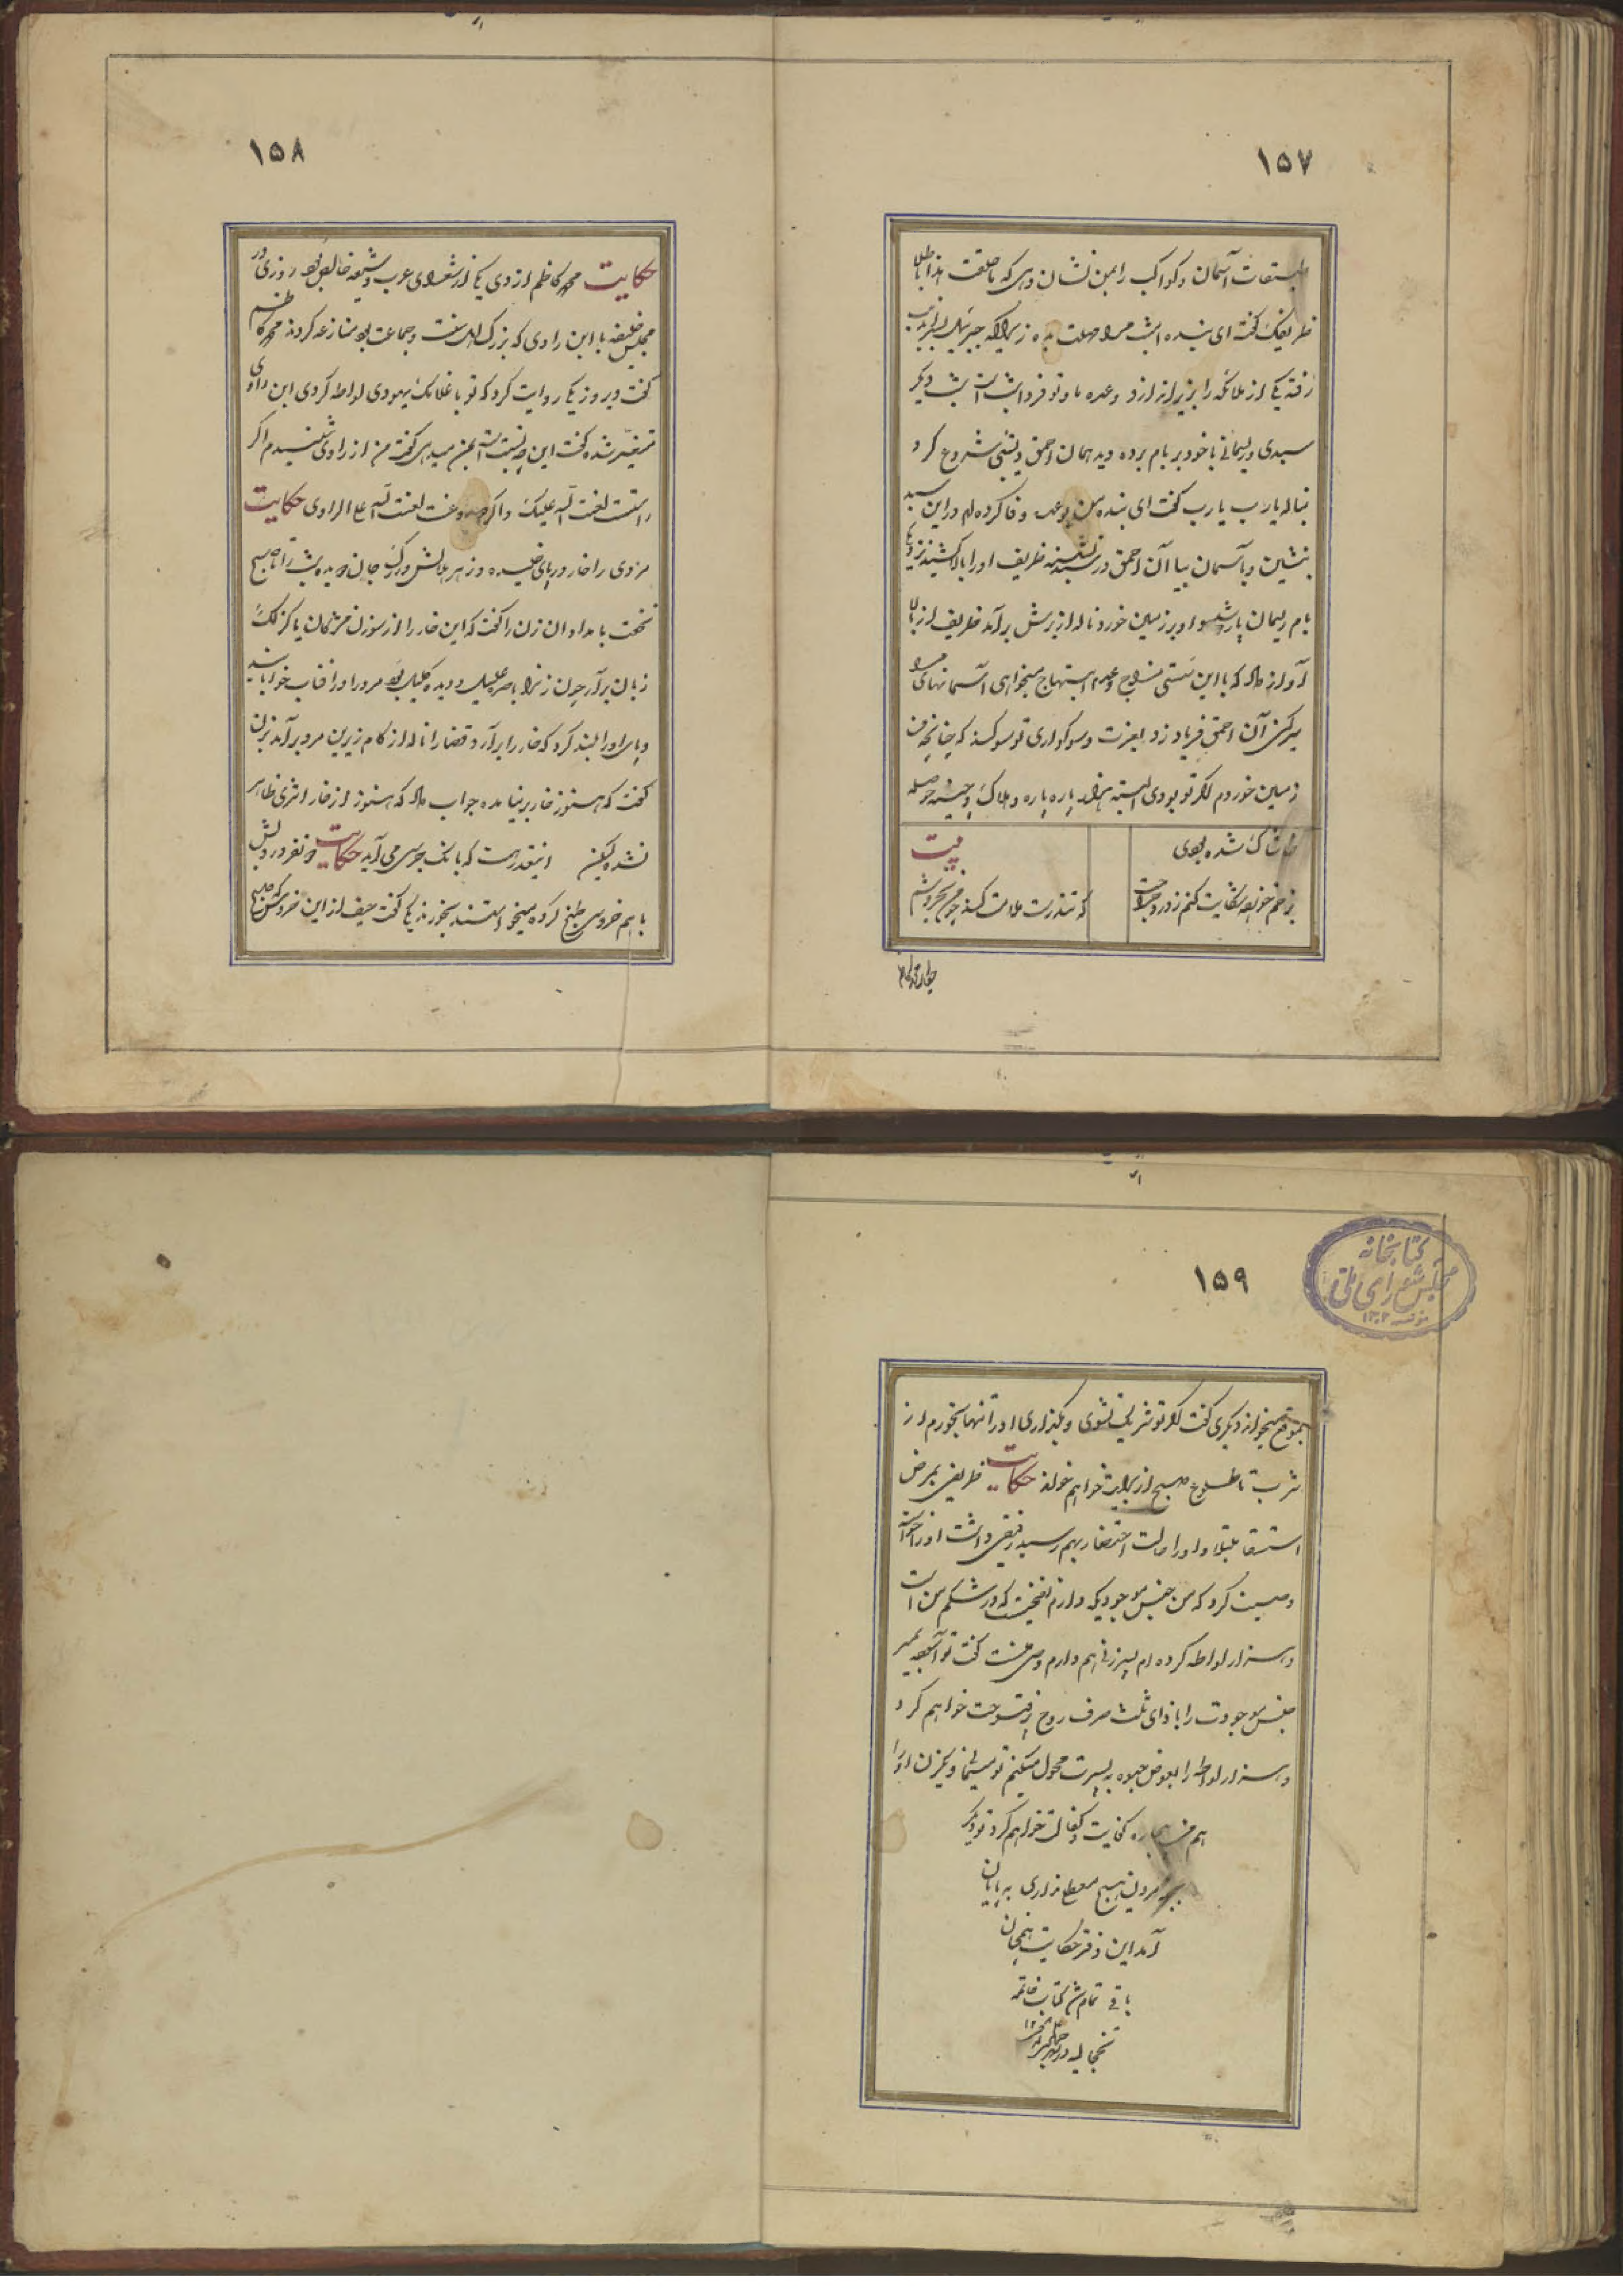 ۱۵۷
طبقات آسمان و کواکب را بمن نشان دهی که ما خلقت هذا باطلا
ظریفک گفت ای بنده امشب مرا مهلت بده زیرا که جبرئیل
رفته یکی از ملائکه را بزیر اندازد وعده ما و تو فردا شب است شب دیگر
سبدی و ریسمانی با خود بر بام برده دید همان احمق دیشبی شروع کرد
بناله یارب یارب گفت ای بنده من بوعده وفا کرده ام در این سبد
بنشین و بآسمان بیا آن احمق در سبد نشسته ظریف او را بالا کشید نزدیک
بام ریسمان پاره شد و او بر زمین خورد ناله از برش برآمد ظریف از بالا
آواز داد که با این سستی مزاج و عدم ابتهاج میخواهی آسمانهای مرا
سیر کنی آن احمق فریاد زد بعزت و سوکواری تو سوگند که چنانچه من
زمین خوردم اگر تو بودی البته هزار پاره پاره و هلاک و چینه حوصله
خاشاک شده بودی
بیت
بزخم خورده شکایت کنم ز درد جراحت
که تندرست ملامت کند چو من بخروشم
۱۵۸
حکایت محمد کاظم ازدی یکی از شعرای عرب و شیعه خالص بود روزی در
مجلس خلیفه با ابن راوی که بزرگ اهل سنت و جماعت بود منازعه کردند محمد کاظم
گفت دیروز یکی روایت کرد که تو با غلامک یهودی لواطه کردی ابن راوی
متغیر شده گفت این چه نسبت است بمن میدهی گفت من از راوی شنیدم اگر
راستست لعنت الله علیک و اگر دروغست لعنت الله علی الراوی حکایت
مردی را خار در پای خلیده و زهر هلالش در رگ جان دویده شب را تا صبح
نخفت بامدادان زن را گفت که این خار را از سوزن مژگان یا گزلک
زبان برآر چون زنرا باصره علیل و دیده کلیل بود مرد را در آفتاب خوابانید
و پای او را بلند کرد که خار را برآرد قضا را ناله از کام زیرین مرد برآمد بزن
گفت که هنوز خار بر نیامده جواب داد که هنوز از خار اثری ظاهر
نشده لیکن اینقدر هست که بانک جرسی می آید حکایت دو نفر درویش
با هم خروسی طبخ کرده میخواستند بخورند یکی گفت حیف از این خروس که صبح
۱۵۹
کتابخانه
مجلس شورای ملی
بموقع میخواند دیگری گفت اگر تو شریک نشوی و بگذاری او را تنها بخورم از
شب تا طلوع صبح از برایت خواهم خواند حکایت ظریفی بمرض
استسقا مبتلا و او را حالت احتضار بهم رسید رفیقی داشت او را خواسته
وصیت کرد که من جنس موجودیکه دارم نفخیست که در شکم من است
و هزار لواطه کرده ام پسر زنی هم دارم وصی منست گفت تو آسوده بمیر
جنس موجودت را با ادای ثلث صرف روح پرفتوحت خواهم کرد
و هزار لواطه را بعوض حبوه به پسرت محول میکنم تو میمانی و یک زن او را
هم من بیچاره کفایت و کفالت خواهم کرد تو دیگر
بمردن هیچ معطلی نداری به پایان
آمد این دفتر حکایت همچنان
باقی تمام شد کتاب